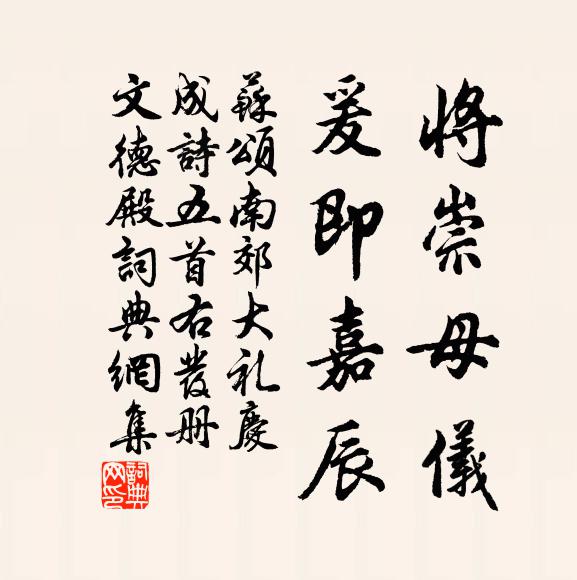 將崇母儀
爰即嘉辰
蘇頌南郊大礼慶
成詩五首右發册
文德殿詞典網集
詞典
网印